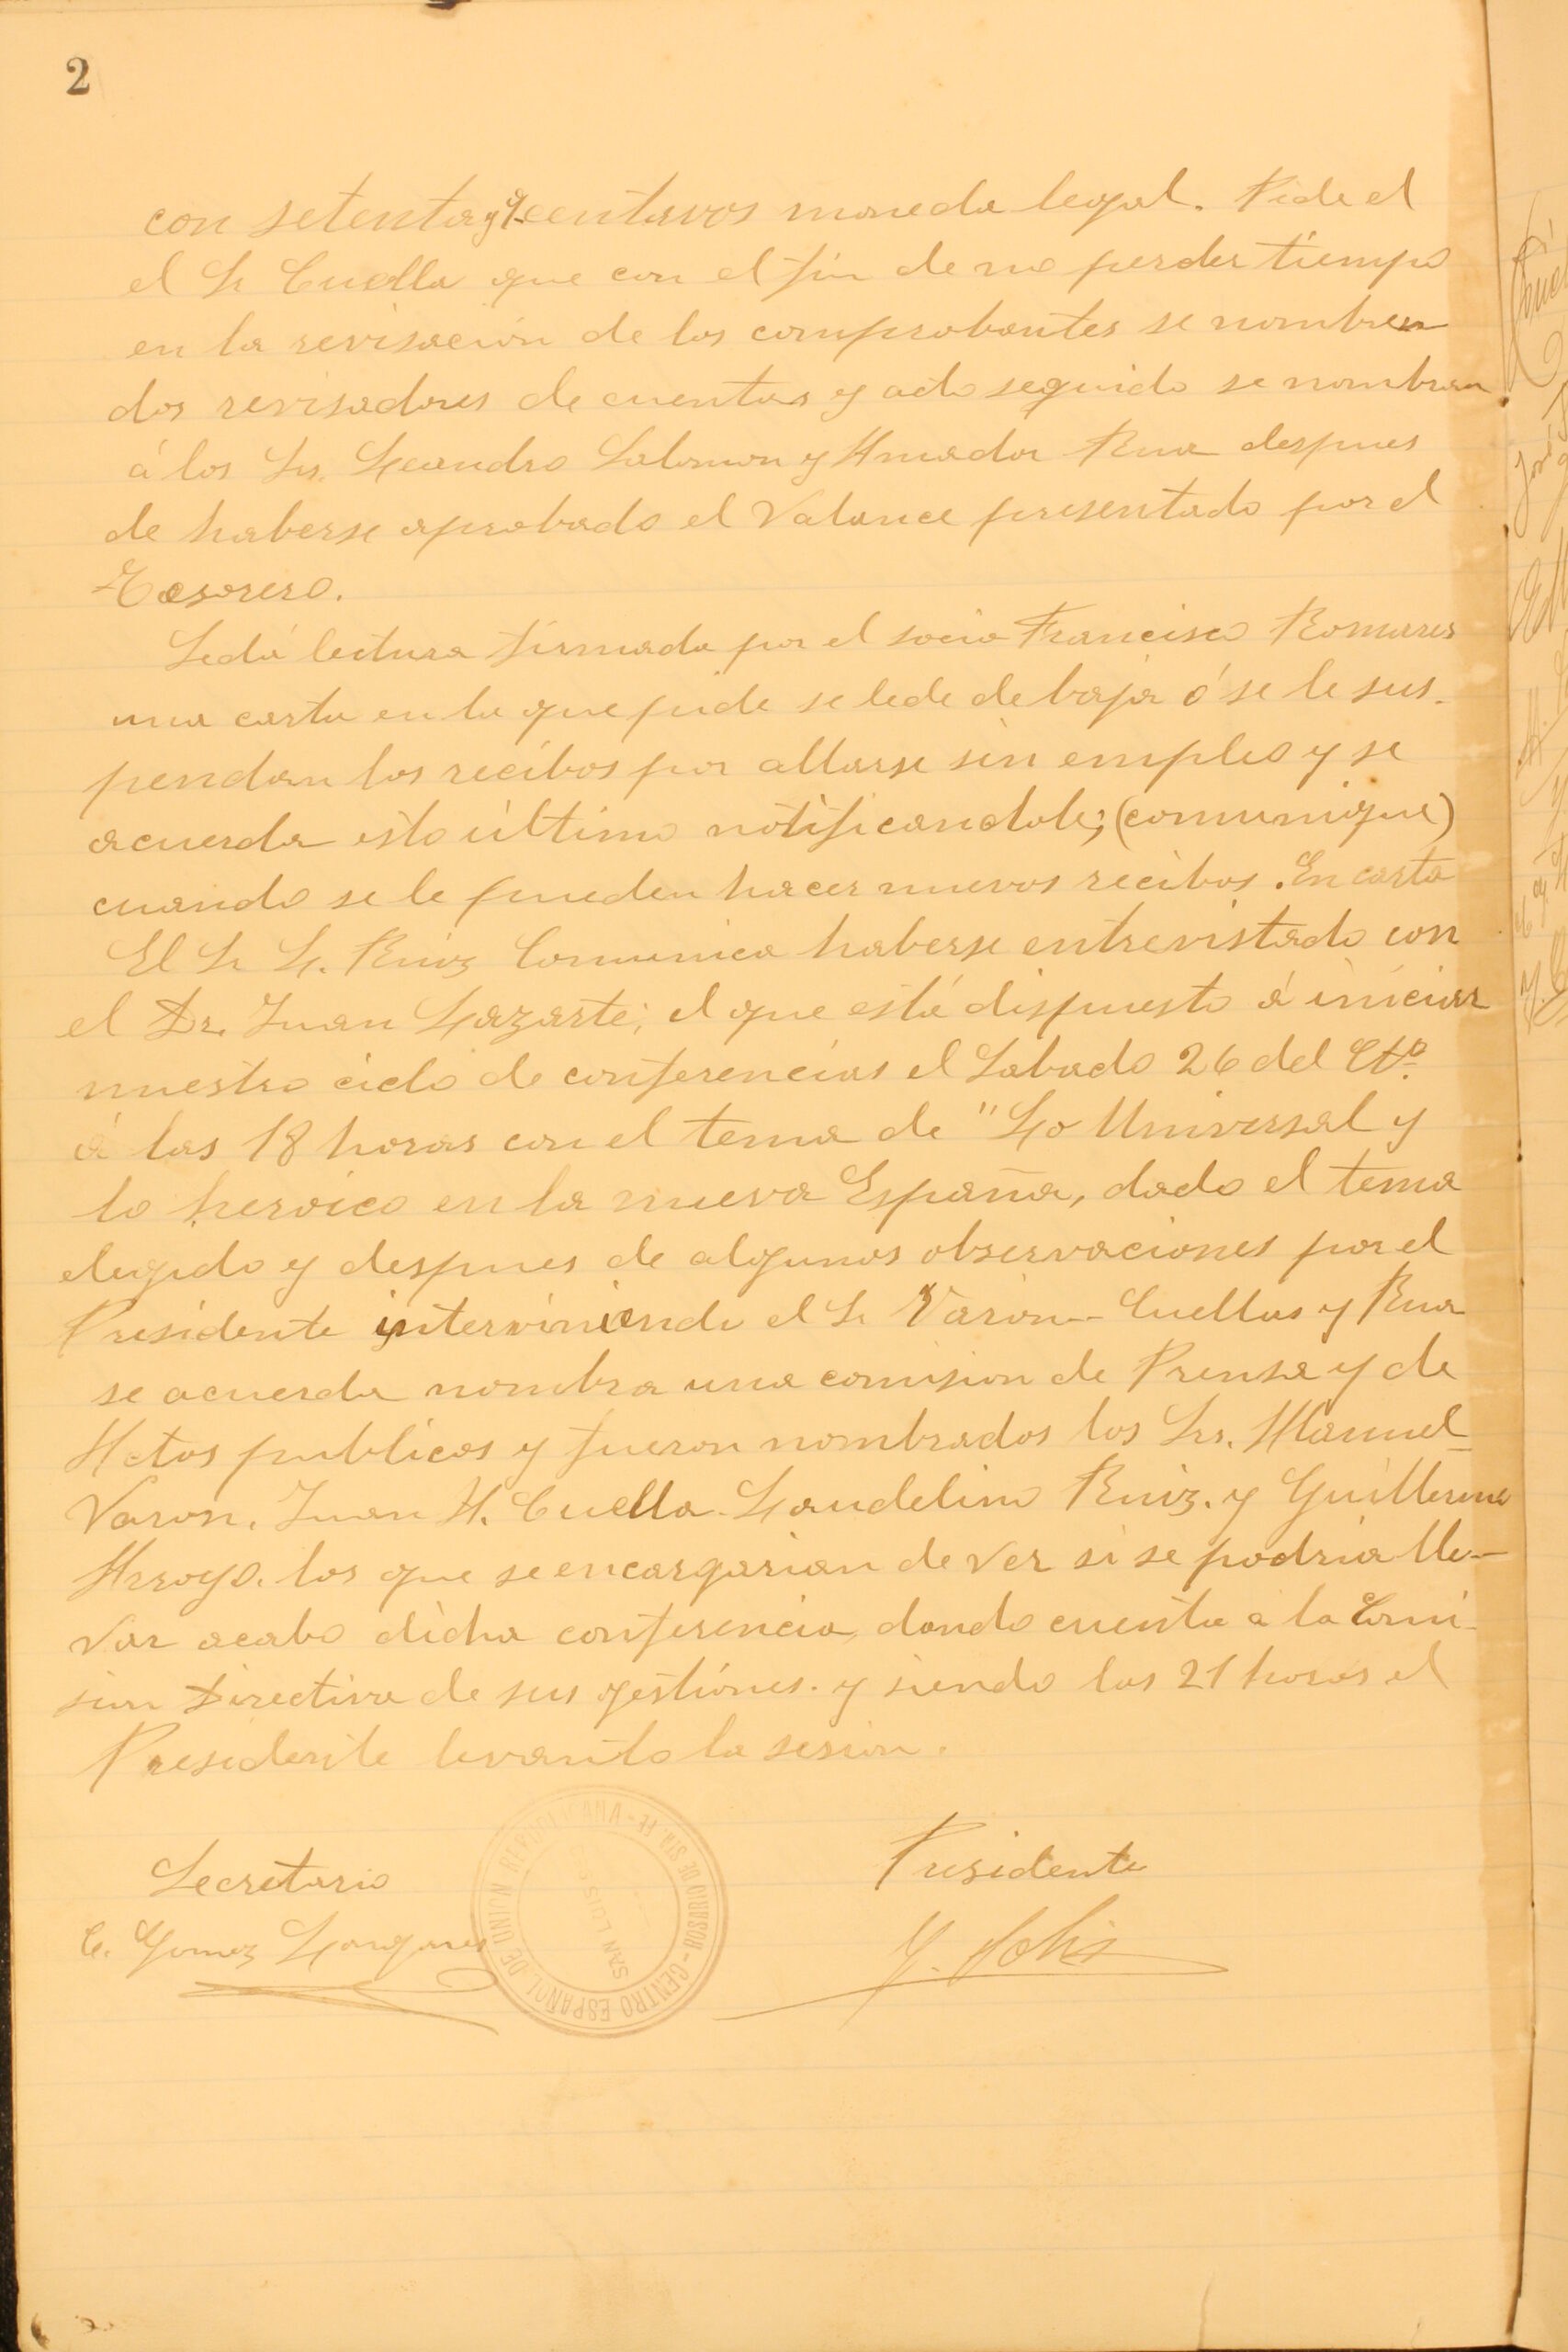 2
con setenta y 9 centavos moneda legal. Pide el
el Sr Cuella que con el fin de no perder tiempo
en la revisación de los comprobantes se nombren
dos revisadores de cuentas y acto seguido se nombran
á los Srs. Leandro Salomon y Amador Rua despues
de haberse aprobado el Valance presentado por el
Tesorero.
Se dá lectura firmada por el socio Francisco Romares
una carta en la que pide se le de de baja ó se le sus-
pendan los recibos por allarse sin empleo y se
acuerda esto último notificandole; (comunique)
cuando se le pueden hacer nuevos recibos. En carta
El Sr L. Ruiz Comunica haberse entrevistado con
el Dr. Juan Lazarte; el que está dispuesto á iniciar
nuestro ciclo de conferencias el Sabado 26 del Cte.
á las 18 horas con el tema de "Lo Universal y
lo heroico en la nueva España, dado el tema
elegido y despues de algunos observaciones por el
Presidente interviniendo el Sr Varon - Cuellas y Rua
se acuerda nombra una comision de Prensa y de
Actos publicos y fueron nombrados los Srs. Manuel
Varon. Juan A. Cuella. Laudelino Ruiz. y Guillermo
Arroyo. los que se encargarian de ver si se podria lle-
var acabo dicha conferencia, dando cuenta a la Comi-
sion Directiva de sus gestiónes. y siendo las 21 horas el
Presidente levanto la sesion.
Secretario
Presidente
C. Gomez Langares
J. Solis
CENTRO ESPAÑOL DE UNION REPUBLICANA - ROSARIO DE STA. FE -
SAN LUIS